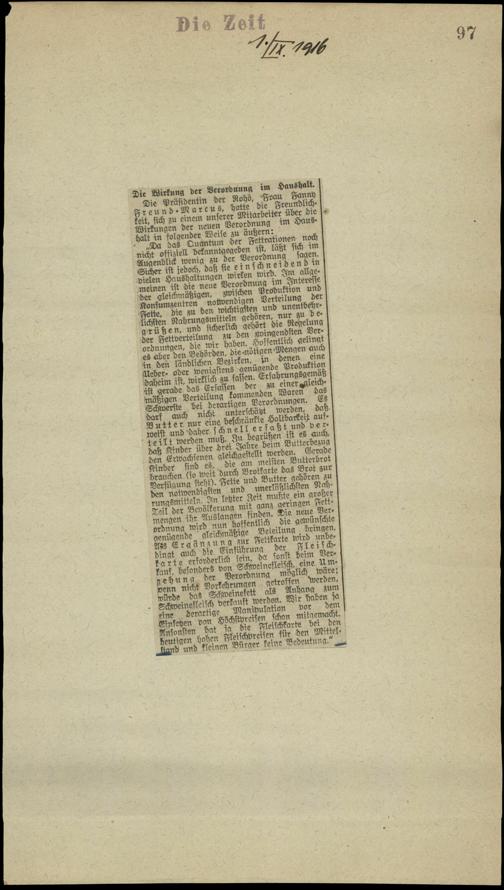 Die Zeit
1./IX. 1916
97
Die Wirkung der Verordnung im Haushalt.
Die Präsidentin der Rohö, Frau Fanny
Freund-Marcus, hatte die Freundlich-
keit, sich zu einem unserer Mitarbeiter über die
Wirkungen der neuen Verordnung im Haus-
halt in folgender Weise zu äußern:
„Da das Quantum der Fettrationen noch
nicht offiziell bekanntgegeben ist, läßt sich im
Augenblick wenig zu der Verordnung sagen.
Sicher ist jedoch, daß sie einschneidend in
vielen Haushaltungen wirken wird. Im allge-
meinen ist die neue Verordnung im Interesse
der gleichmäßigen, zwischen Produktion und
Konsumzentren notwendigen Verteilung der
Fette, die zu den wichtigsten und unentbehr-
lichsten Nahrungsmitteln gehören, nur zu be-
grüßen, und sicherlich gehört die Regelung
der Fettverteilung zu den zwingendsten Ver-
ordnungen, die wir haben. Hoffentlich gelingt
es aber den Behörden, die nötigen Mengen auch
in den ländlichen Bezirken, in denen eine
Ueber- oder wenigstens genügende Produktion
daheim ist, wirklich zu fassen. Erfahrungsgemäß
ist gerade das Erfassen der zu einer gleich-
mäßigen Verteilung kommenden Waren das
Schwerste bei derartigen Verordnungen. Es
darf auch nicht unterschätzt werden, daß
Butter nur eine beschränkte Haltbarkeit auf-
weist und daher schnell erfaßt und ver-
teilt werden muß. Zu begrüßen ist es auch,
daß Kinder über drei Jahre beim Butterbezug
den Erwachsenen gleichgestellt werden. Gerade
Kinder sind es, die am meisten Butterbrot
brauchen (so weit durch Brotkarte das Brot zur
Verfügung steht). Fette und Butter gehören zu
den notwendigsten und unerläßlichsten Nah-
rungsmitteln. In letzter Zeit mußte ein großer
Teil der Bevölkerung mit ganz geringen Fett-
mengen ihr Auslangen finden. Die neue Ver-
ordnung wird nun hoffentlich die gewünschte
genügende gleichmäßige Beteilung bringen.
Als Ergänzung zur Fettkarte wird unbe-
dingt auch die Einführung der Fleisch-
karte erforderlich sein, da sonst beim Ver-
kauf, besonders von Schweinefleisch, eine Um-
gehung der Verordnung möglich wäre;
wenn nicht Vorkehrungen getroffen werden,
würde das Schweinefett als Anhang zum
Schweinefleisch verkauft werden. Wir haben ja
eine derartige Manipulation vor dem
Einsetzen von Höchstpreisen schon mitgemacht.
Ansonsten hat ja die Fleischkarte bei den
heutigen hohen Fleischpreisen für den Mittel-
stand und kleinen Bürger keine Bedeutung."